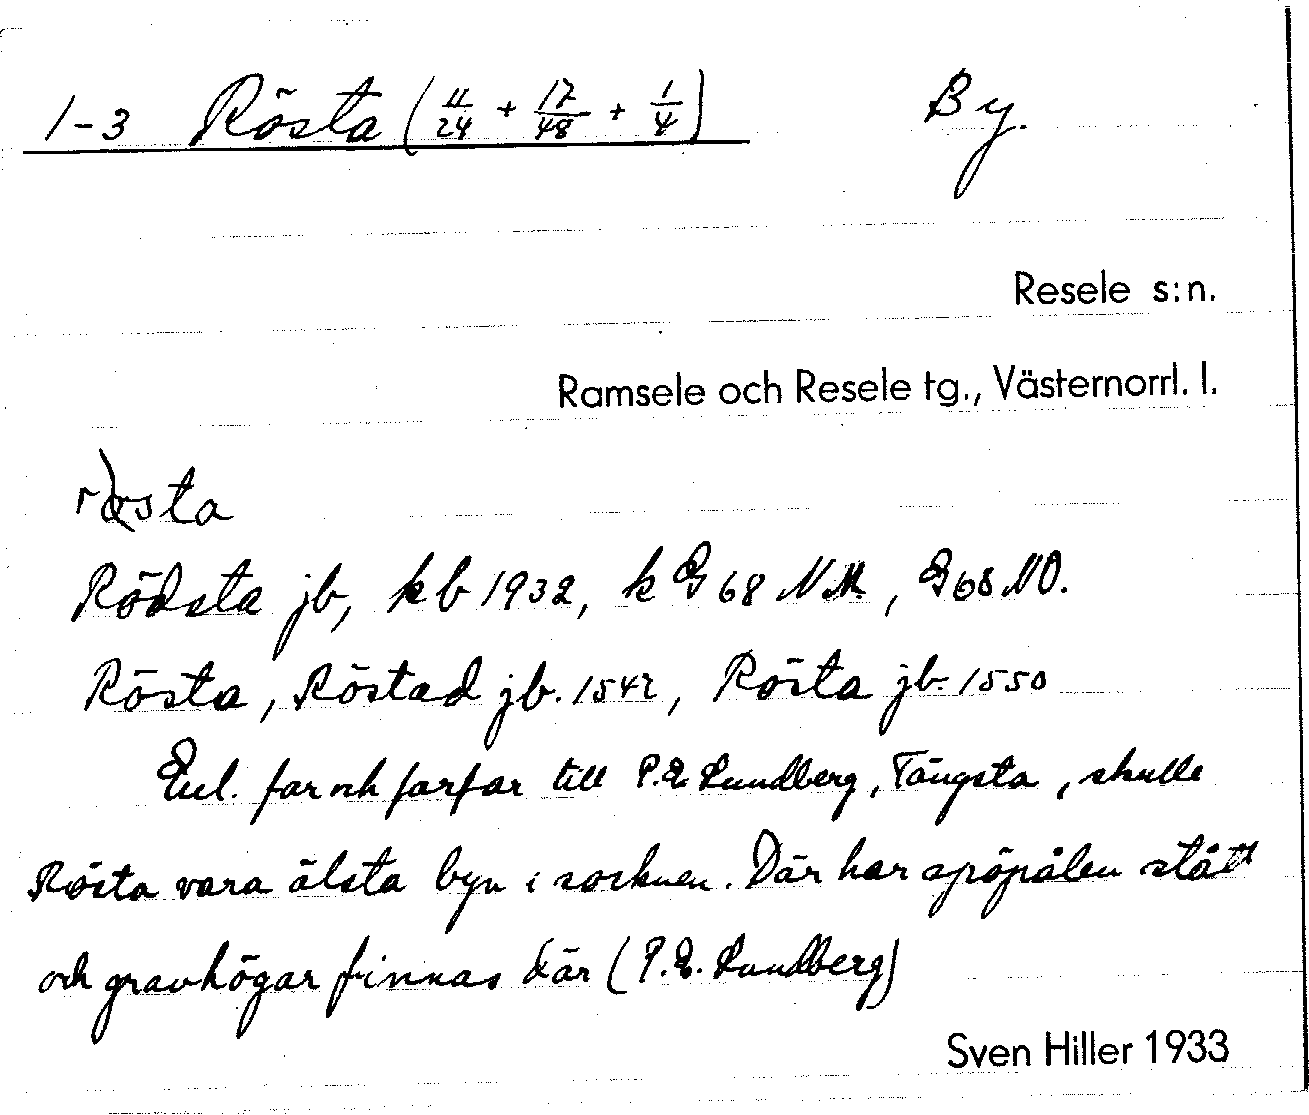 1-3 Rösta (11/24 + 17/48 + 1/4) By.
Resele s:n.
Ramsele och Resele tg., Västernorrl. l.
Rödsta jb, kb 1932, k G 68 NM, G 68 NO.
Rösta, Röstad jb. 1542, Rösta jb. 1550
Enl. far och farfar till P.E. Lundberg, Tängsta, skulle
Rösta vara älsta byn i socknen. Där har spöpålen stått
och gravhögar finnas där (P.E. Lundberg)
Sven Hiller 1933